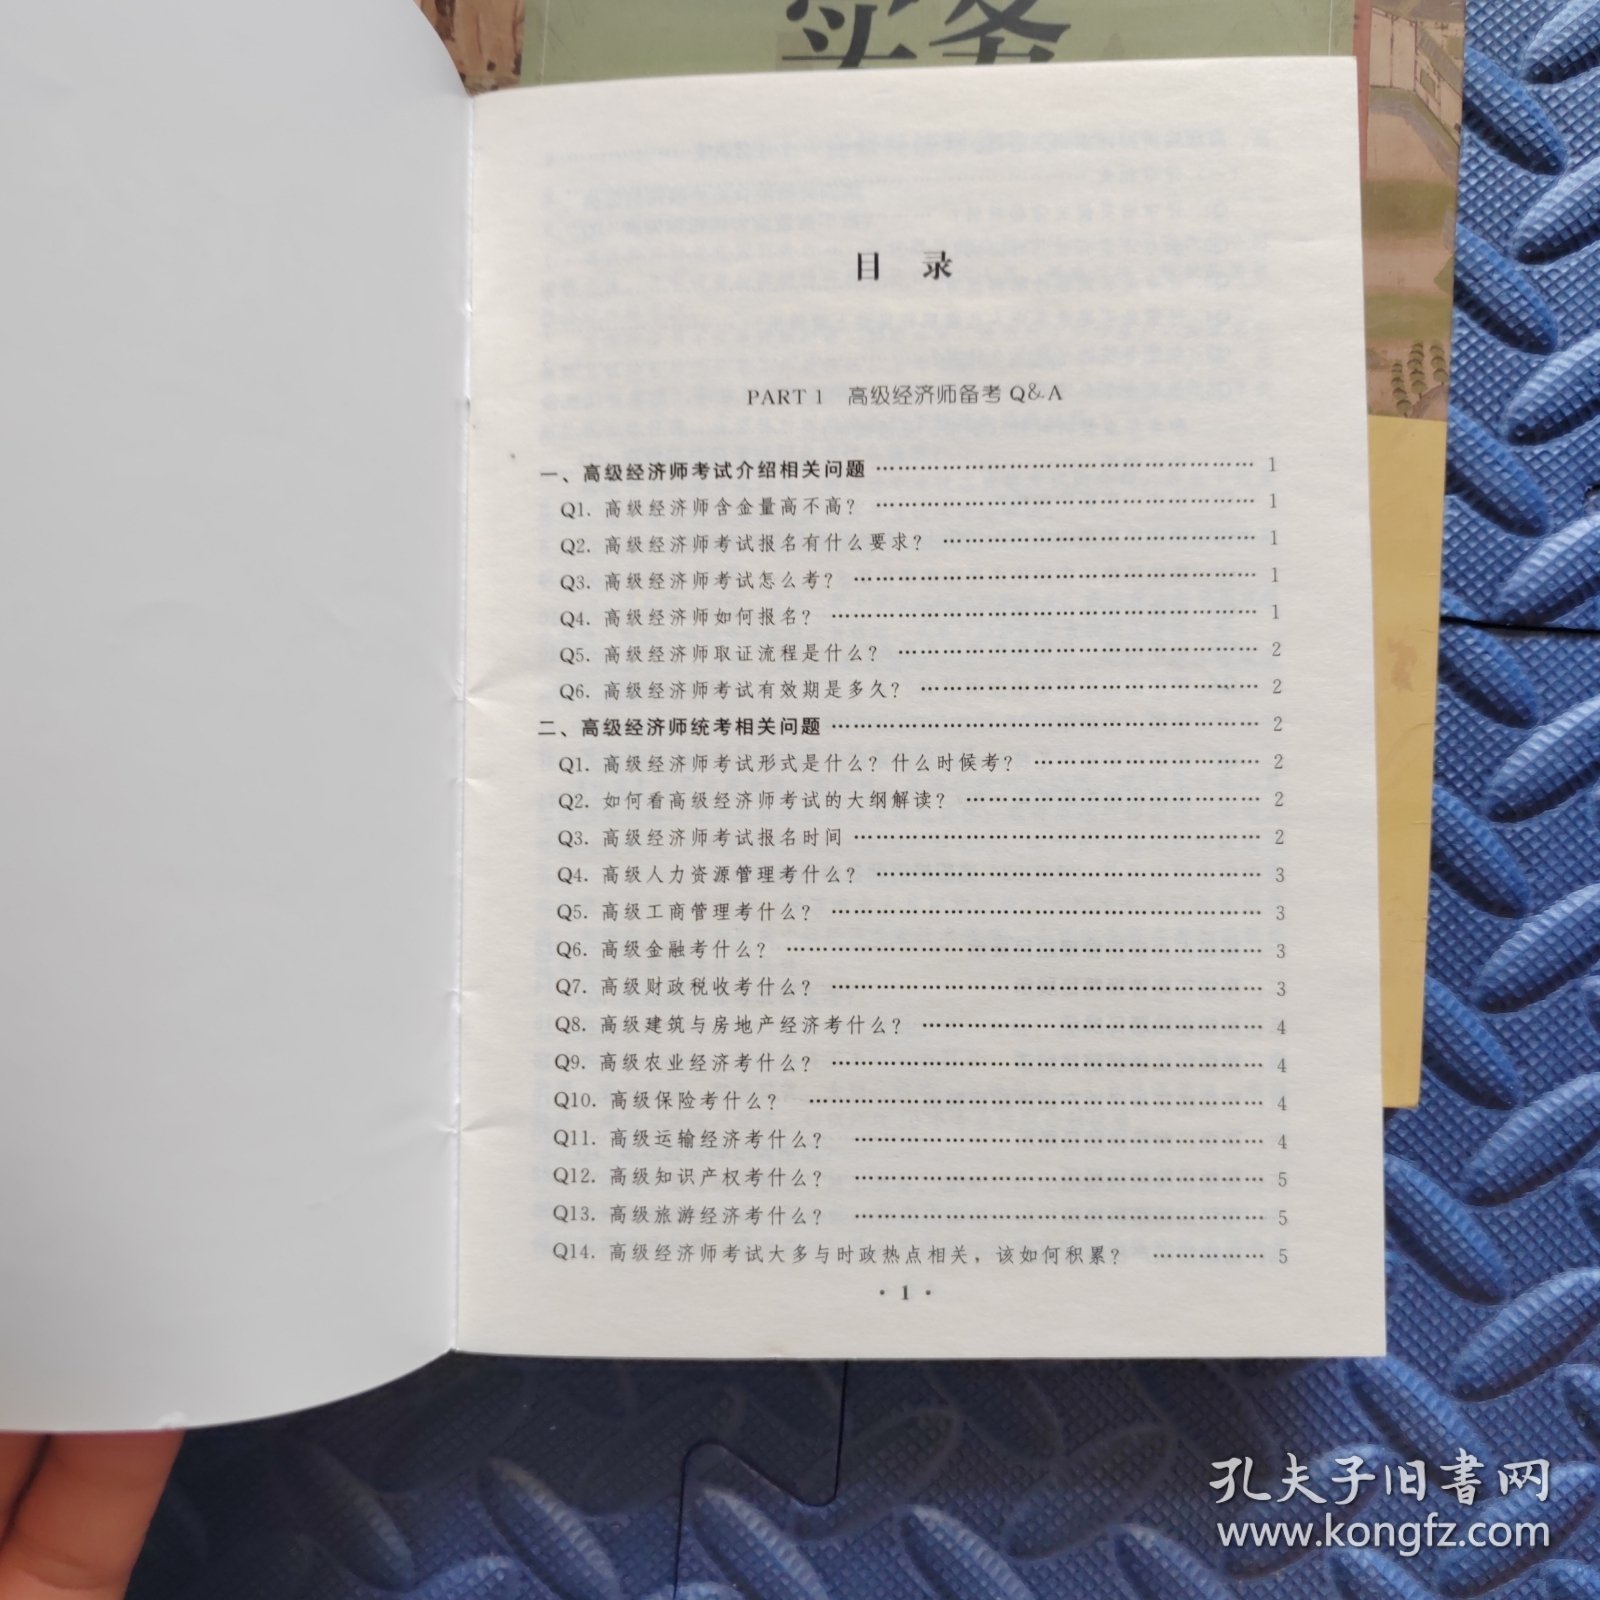 实务
目 录
PART 1 高级经济师备考 Q&A
一、高级经济师考试介绍相关问题 …… 1
Q1. 高级经济师含金量高不高？ …… 1
Q2. 高级经济师考试报名有什么要求？ …… 1
Q3. 高级经济师考试怎么考？ …… 1
Q4. 高级经济师如何报名？ …… 1
Q5. 高级经济师取证流程是什么？ …… 2
Q6. 高级经济师考试有效期是多久？ …… 2
二、高级经济师统考相关问题 …… 2
Q1. 高级经济师考试形式是什么？什么时候考？ …… 2
Q2. 如何看高级经济师考试的大纲解读？ …… 2
Q3. 高级经济师考试报名时间 …… 2
Q4. 高级人力资源管理考什么？ …… 3
Q5. 高级工商管理考什么？ …… 3
Q6. 高级金融考什么？ …… 3
Q7. 高级财政税收考什么？ …… 3
Q8. 高级建筑与房地产经济考什么？ …… 4
Q9. 高级农业经济考什么？ …… 4
Q10. 高级保险考什么？ …… 4
Q11. 高级运输经济考什么？ …… 4
Q12. 高级知识产权考什么？ …… 5
Q13. 高级旅游经济考什么？ …… 5
Q14. 高级经济师考试大多与时政热点相关，该如何积累？ …… 5
· 1 ·
孔夫子旧書网
www.kongfz.com